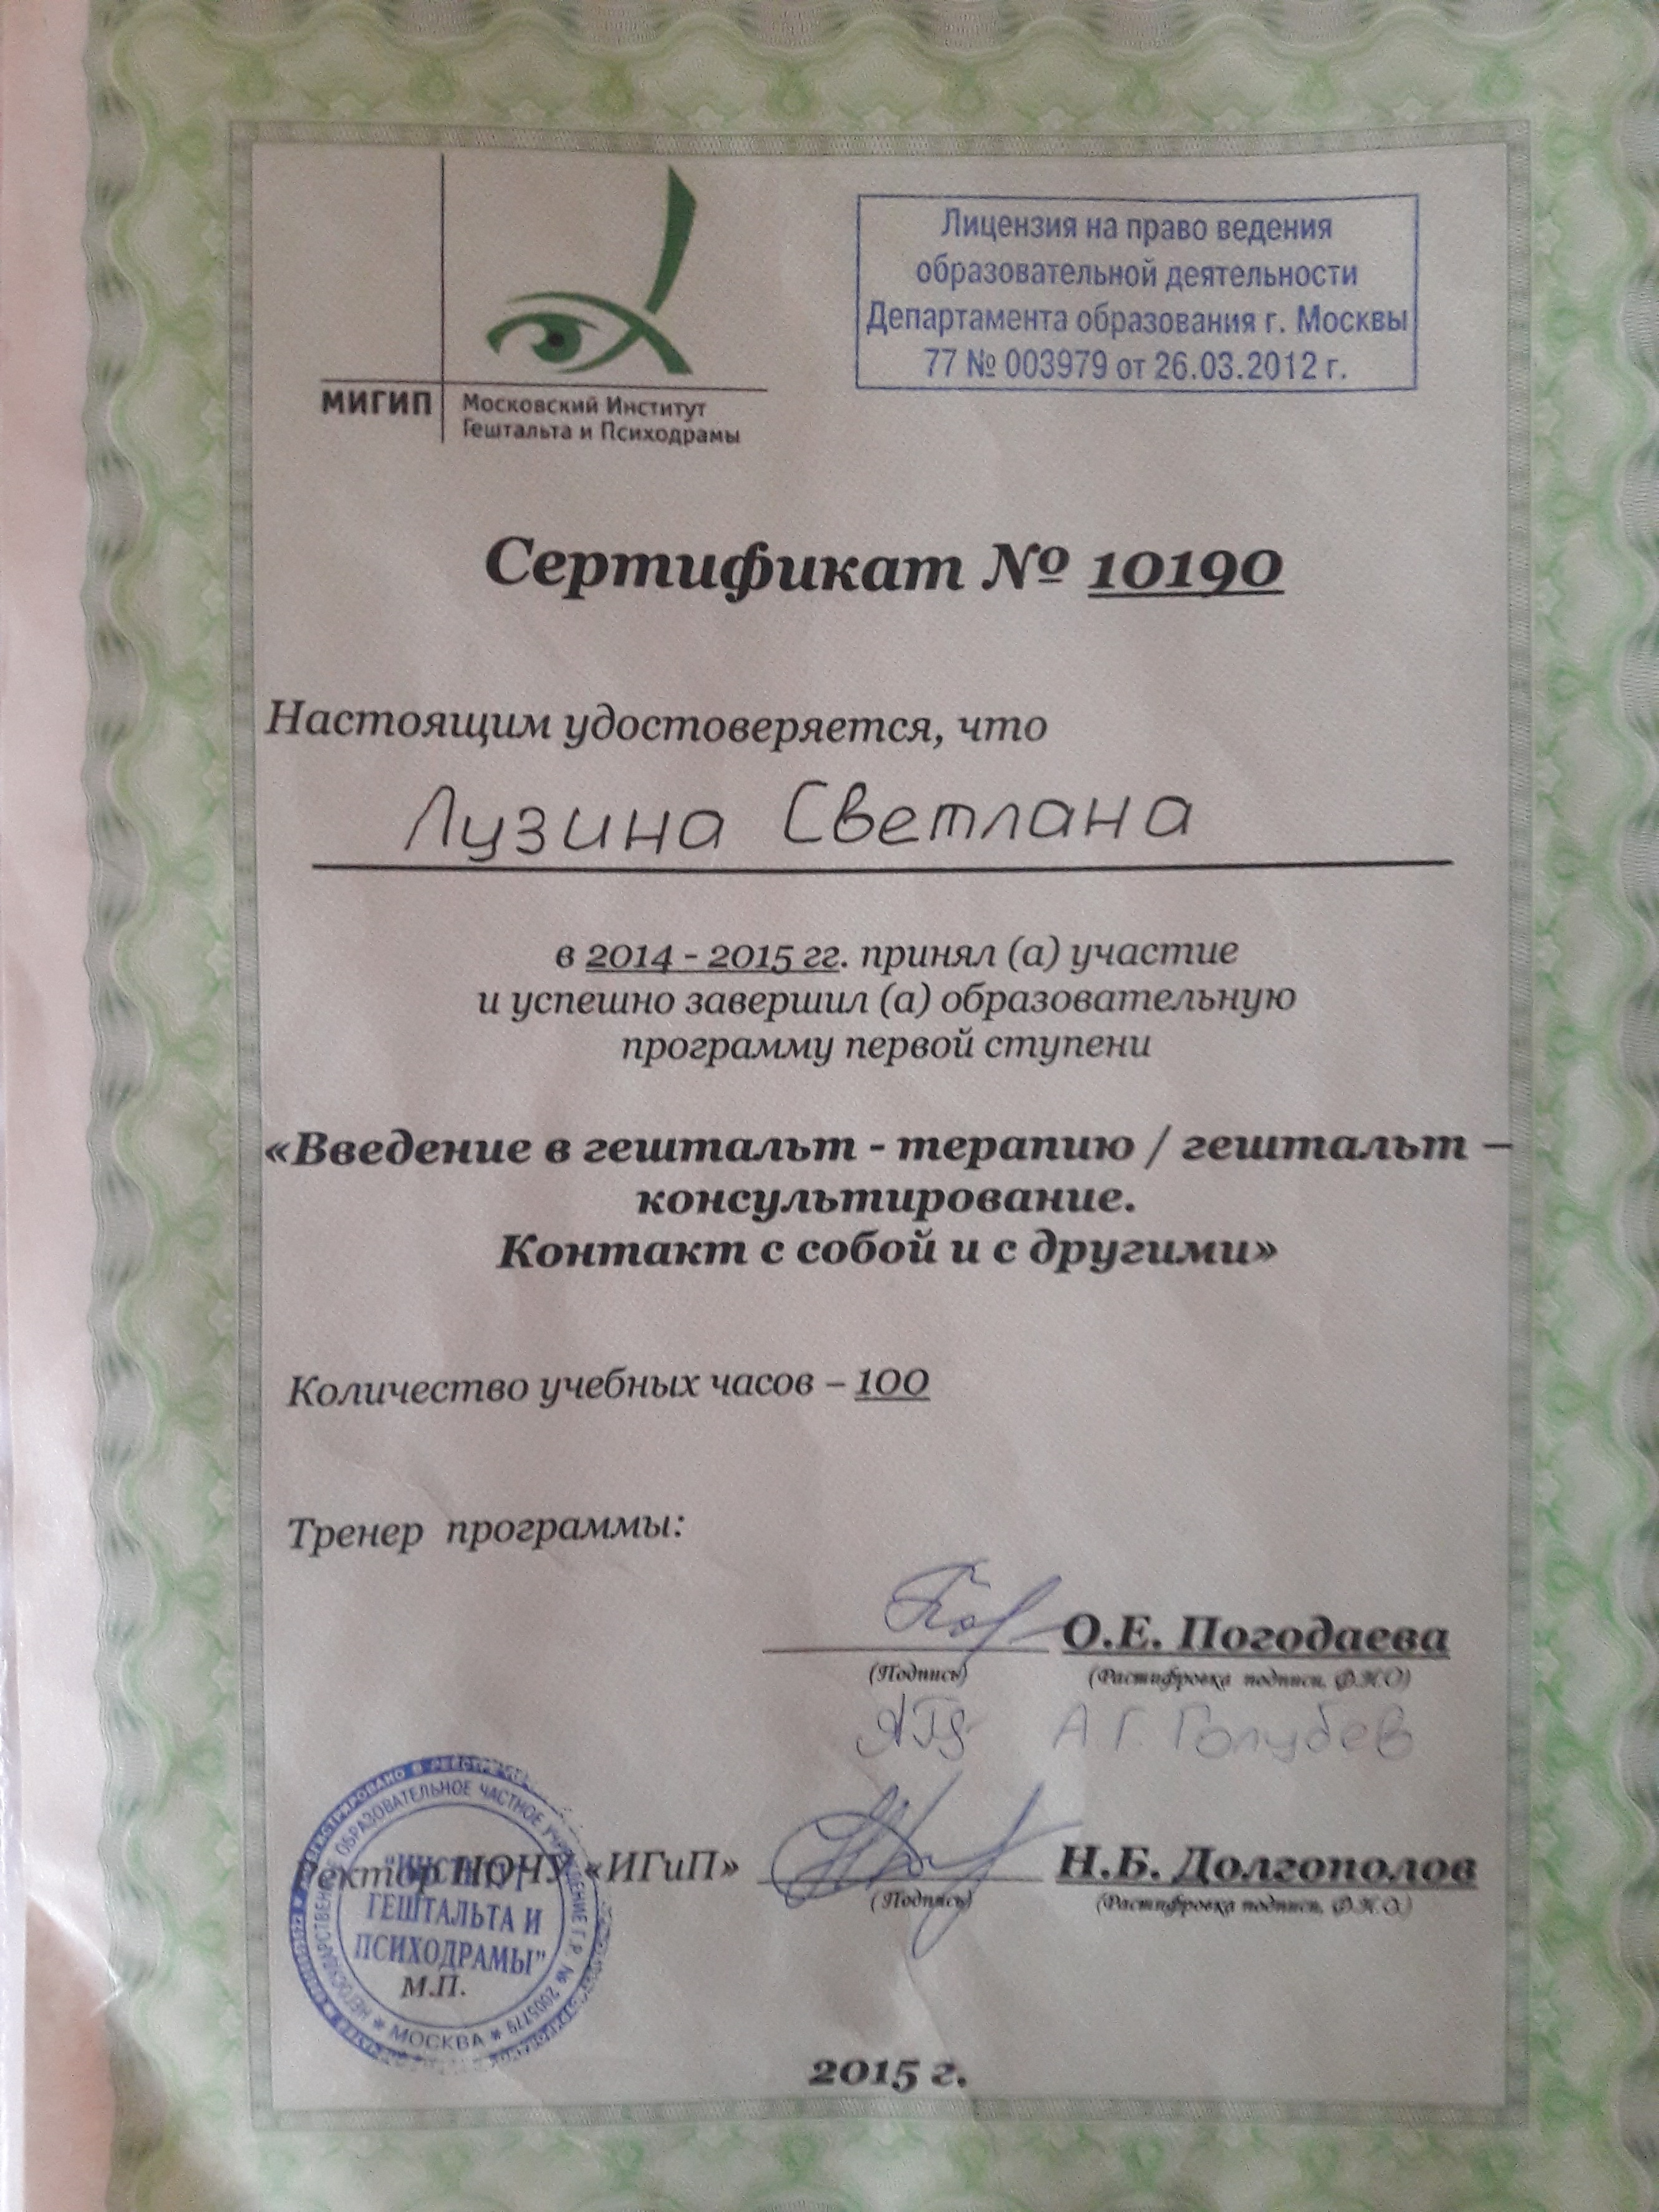 МИГИП
Московский Институт
Гештальта и Психодрамы
Лицензия на право ведения
образовательной деятельности
Департамента образования г. Москвы
77 № 003979 от 26.03.2012 г.
Сертификат № 10190
Настоящим удостоверяется, что
Лузина Светлана
в 2014 - 2015 гг. принял (а) участие
и успешно завершил (а) образовательную
программу первой ступени
«Введение в гештальт - терапию / гештальт –
консультирование.
Контакт с собой и с другими»
Количество учебных часов – 100
Тренер программы:
О.Е. Погодаева
(Подпись) (Расшифровка подписи, Ф.И.О)
А.Г. Голубев
Ректор НОЧУ «ИГиП» Н.Б. Долгополов
(Подпись) (Расшифровка подписи, Ф.И.О.)
НЕГОСУДАРСТВЕННОЕ ОБРАЗОВАТЕЛЬНОЕ ЧАСТНОЕ УЧРЕЖДЕНИЕ Г.Р. № 2005779
* МОСКВА *
"ИНСТИТУТ
ГЕШТАЛЬТА И
ПСИХОДРАМЫ"
М.П.
2015 г.